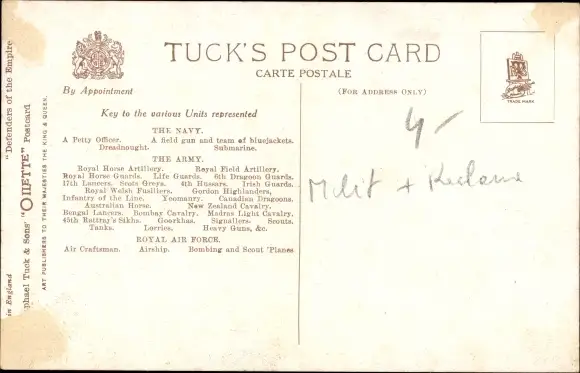 TUCK'S POST CARD
CARTE POSTALE
By Appointment
(FOR ADDRESS ONLY)
TRADE MARK
Key to the various Units represented
THE NAVY.
A Petty Officer. A field gun and team of bluejackets.
Dreadnought. Submarine.
THE ARMY.
Royal Horse Artillery. Royal Field Artillery.
Royal Horse Guards. Life Guards. 6th Dragoon Guards.
17th Lancers. Scots Greys. 4th Hussars. Irish Guards.
Royal Welsh Fusiliers. Gordon Highlanders,
Infantry of the Line. Yeomanry. Canadian Dragoons.
Australian Horse. New Zealand Cavalry.
Bengal Lancers. Bombay Cavalry. Madras Light Cavalry.
45th Rattray's Sikhs. Goorkhas. Signallers. Scouts.
Tanks. Lorries. Heavy Guns, &c.
ROYAL AIR FORCE.
Air Craftsman. Airship. Bombing and Scout 'Planes
4/-
Milit + Reclame
"Defenders of the Empire
phael Tuck & Sons' "OILETTE" Postcard
ART PUBLISHERS TO THEIR MAJESTIES THE KING & QUEEN.
in England